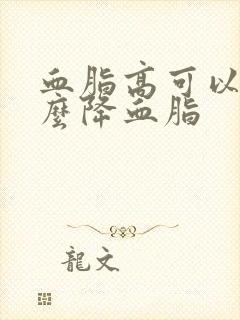 血脂高可以
麼降血脂
龍文